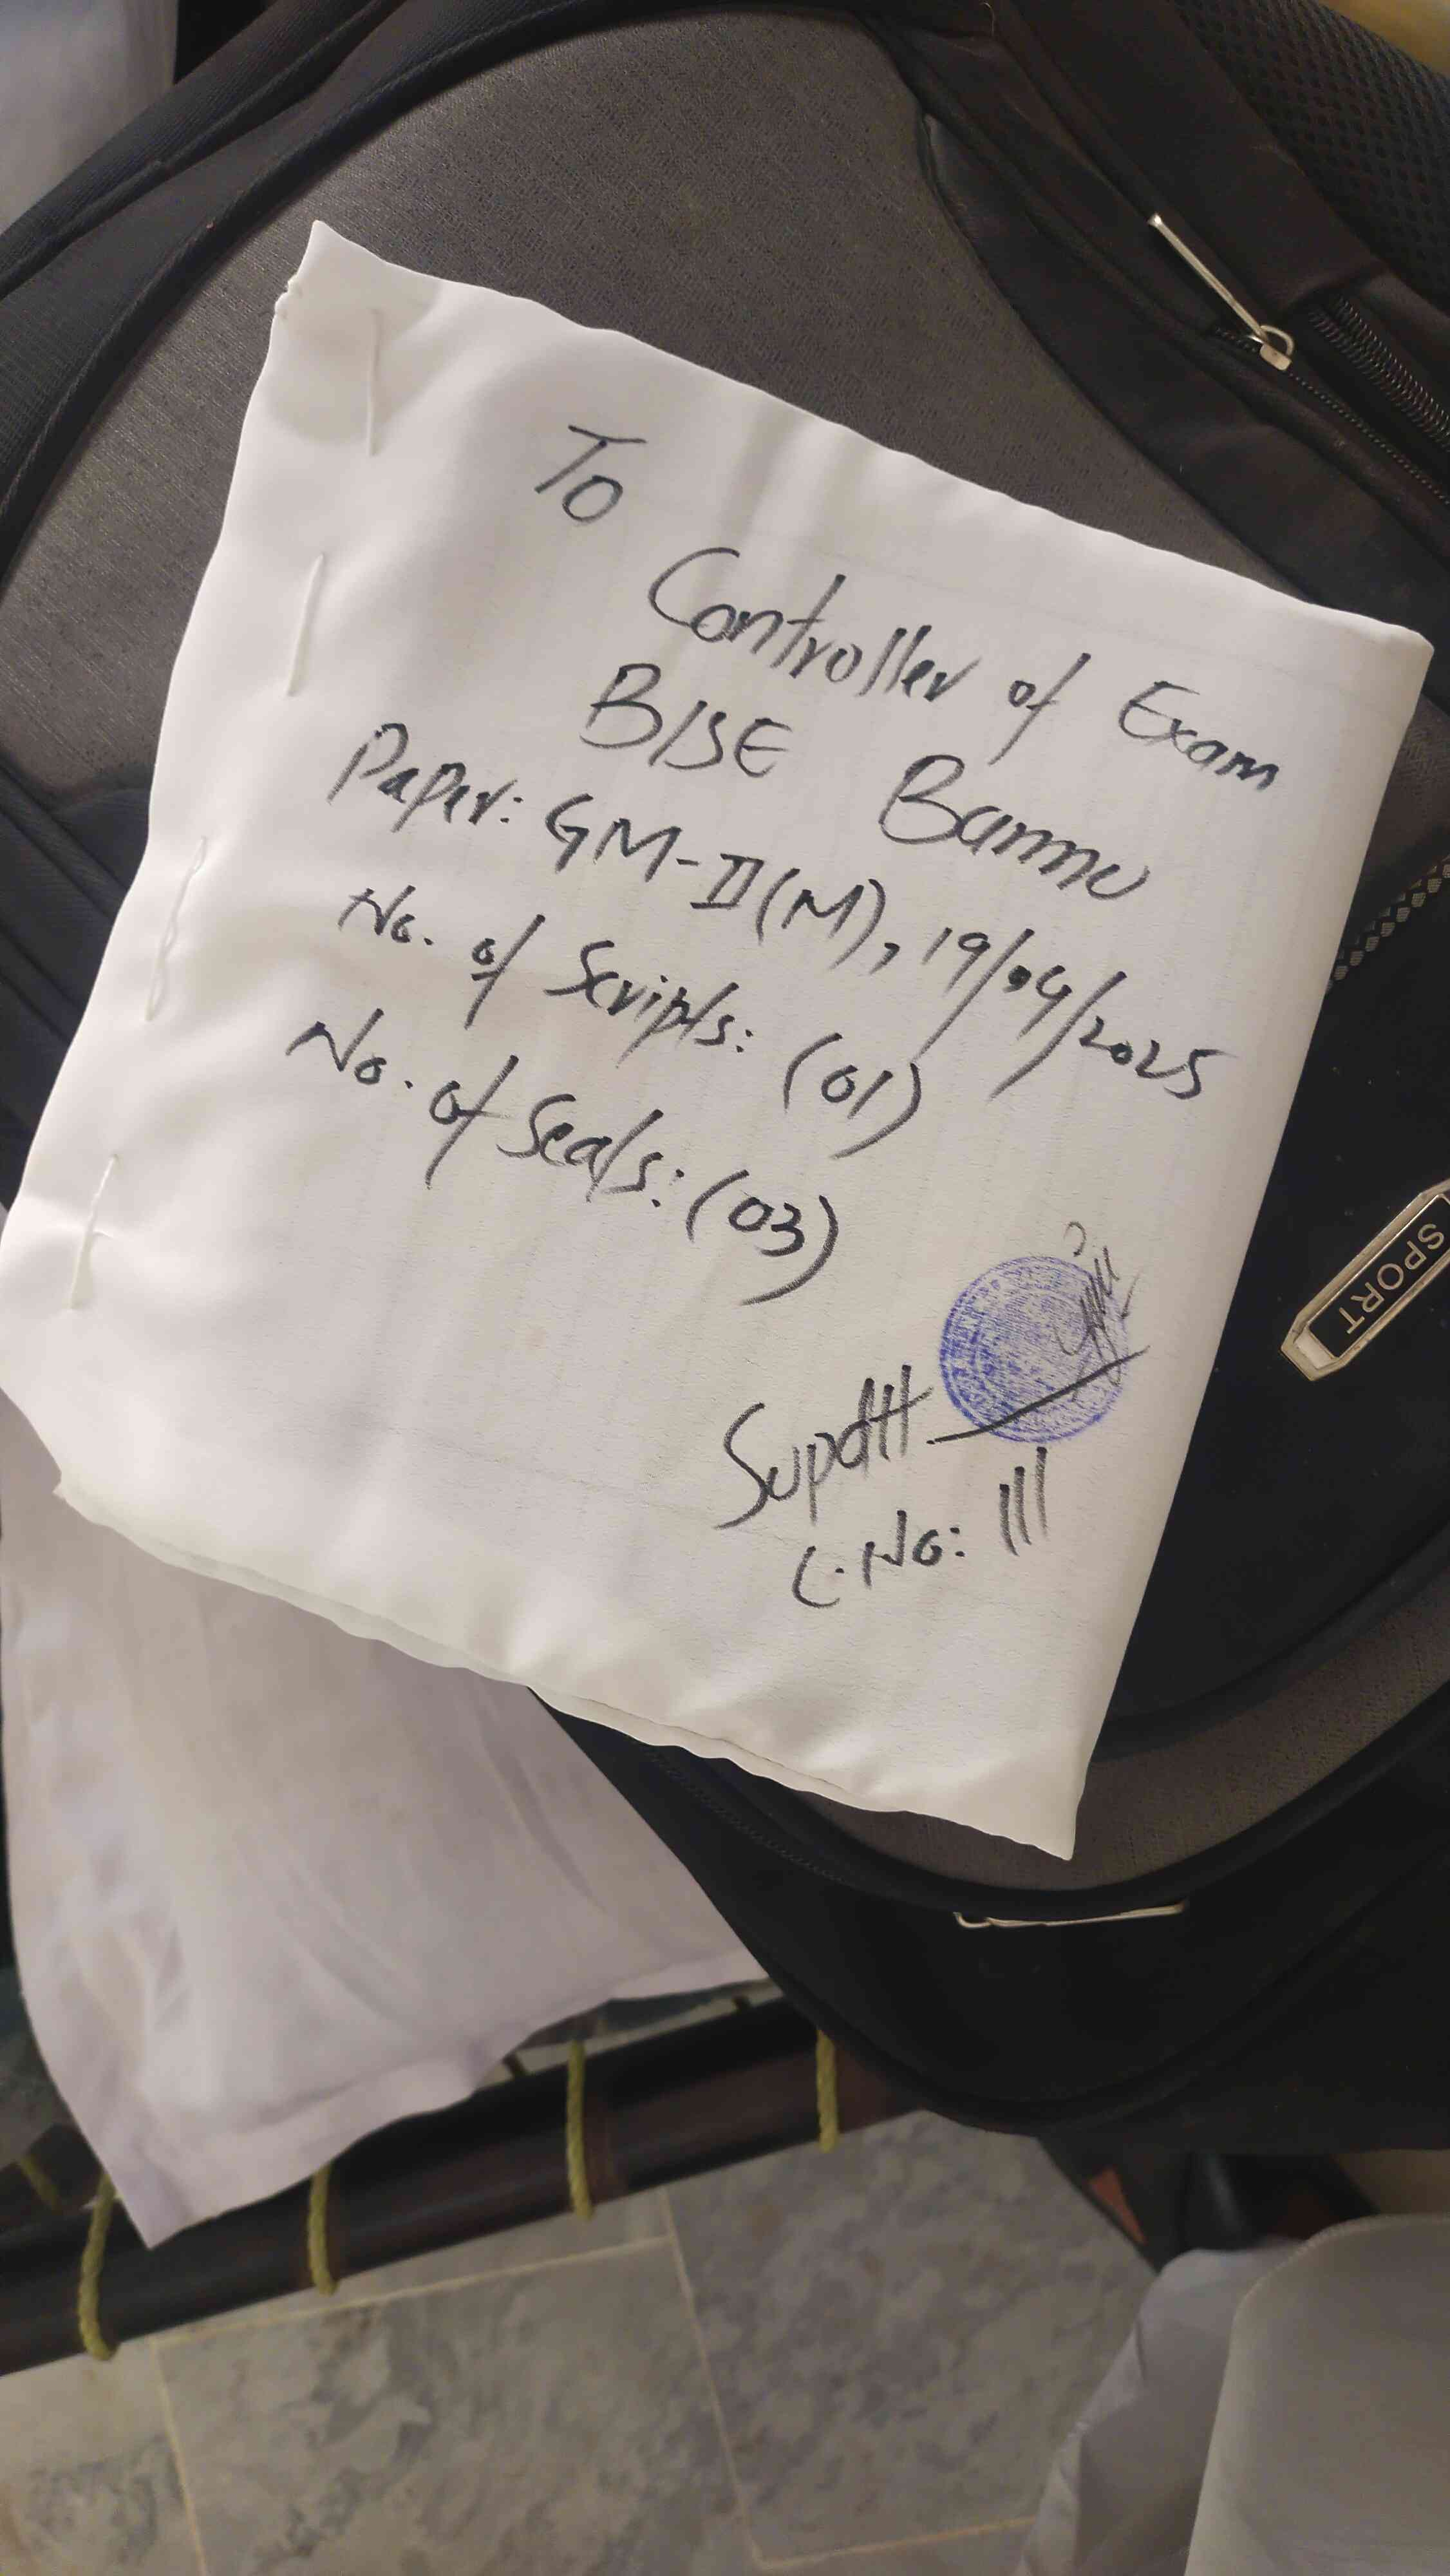 To
Controller of Exam
BISE Bannu
Paper: GM-II(M), 19/04/2025
No. of Scripts: (01)
No. of Seals: (03)
Supdtt.
C.No: 111
SPORT